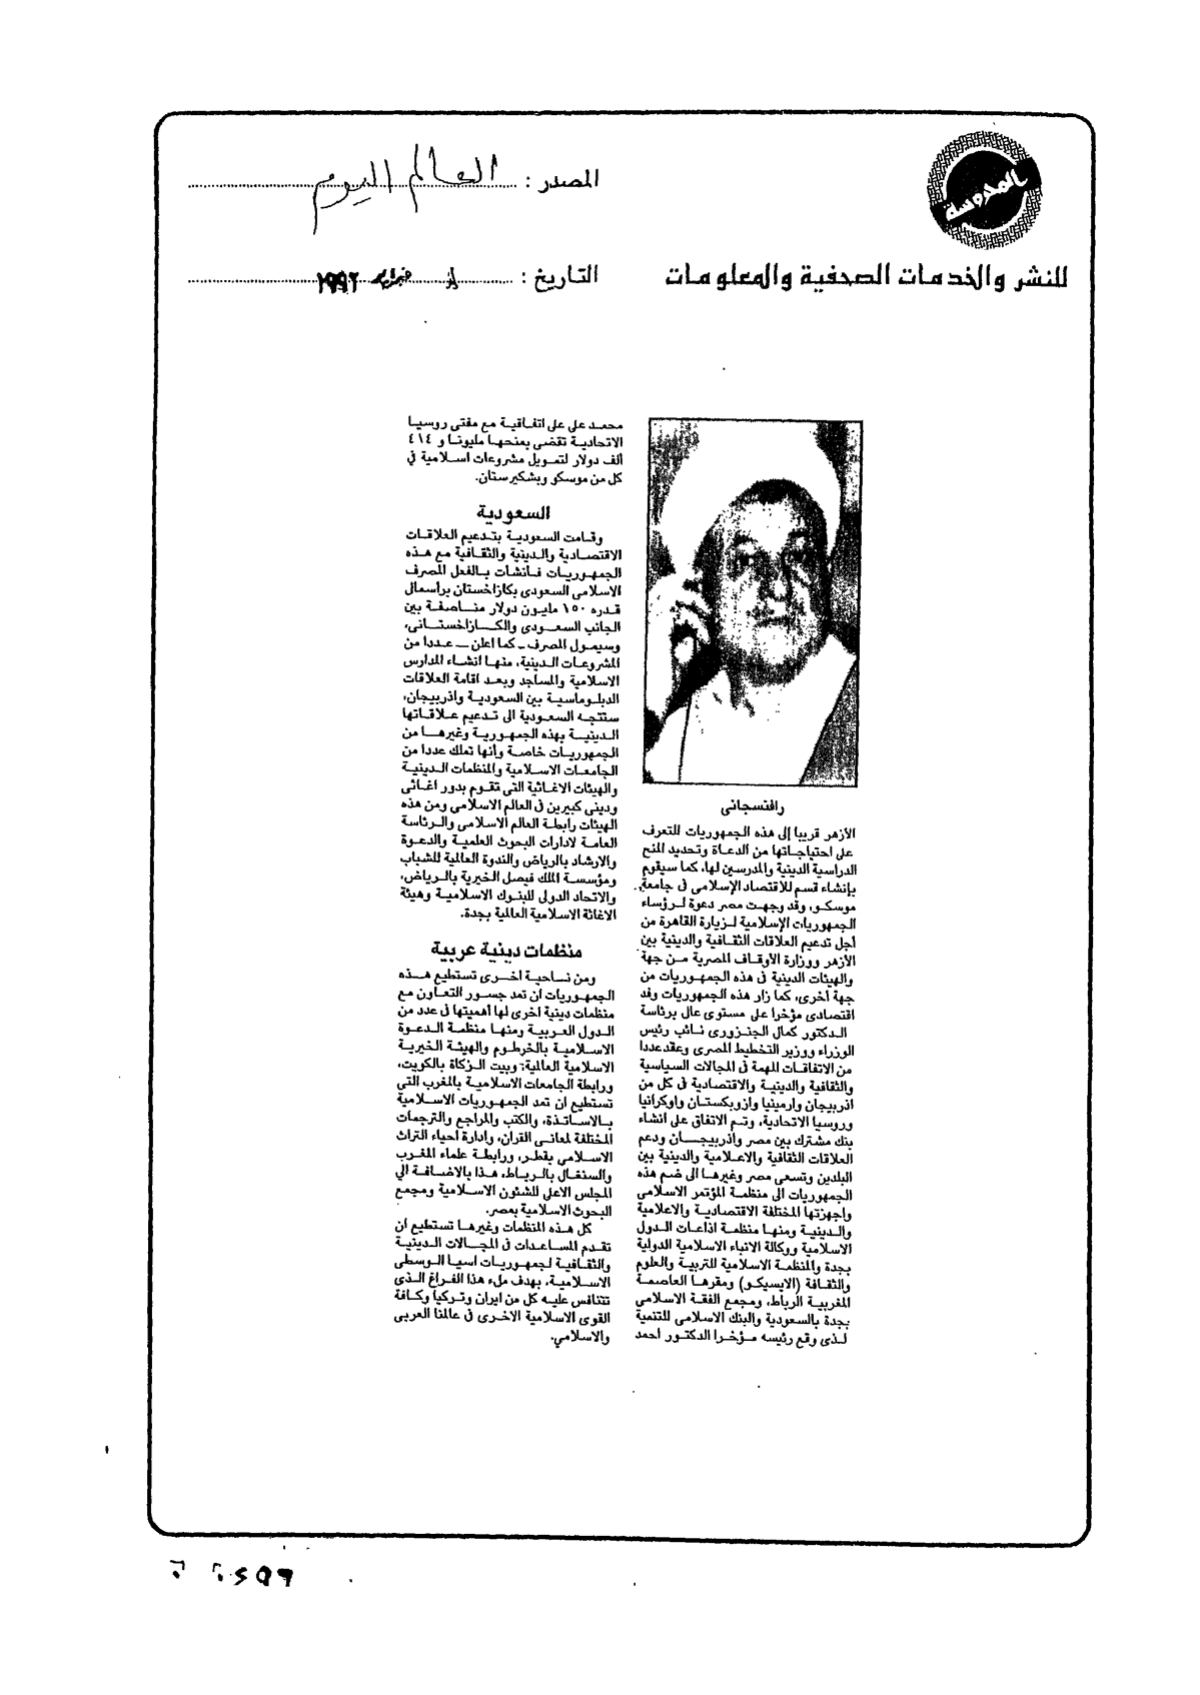 المدوسة
للنشر والخدمات الصحفية والمعلومات
المصدر : العالم اليوم
التاريخ : فبراير ١٩٩٢
رافنسجانى
الأزهر قريبا إلى هذه الجمهوريات للتعرف
على احتياجاتها من الدعاة وتحديد المنح
الدراسية الدينية والمدرسين لها، كما سيقوم
بإنشاء قسم للاقتصاد الإسلامى فى جامعة
موسكو، وقد وجهت مصر دعوة لرؤساء
الجمهوريات الإسلامية لزيارة القاهرة من
أجل تدعيم العلاقات الثقافية والدينية بين
الأزهر ووزارة الأوقاف المصرية من جهة
والهيئات الدينية فى هذه الجمهوريات من
جهة أخرى، كما زار هذه الجمهوريات وفد
اقتصادى مؤخرا على مستوى عال برئاسة
الدكتور كمال الجنزورى نائب رئيس
الوزراء ووزير التخطيط المصرى وعقد عددا
من الاتفاقات المهمة فى المجالات السياسية
والثقافية والدينية والاقتصادية فى كل من
اذربيجان وارمينيا وازوبكستان واوكرانيا
وروسيا الاتحادية، وتم الاتفاق على انشاء
بنك مشترك بين مصر واذربيجان ودعم
العلاقات الثقافية والاعلامية والدينية بين
البلدين وتسعى مصر وغيرها الى ضم هذه
الجمهوريات الى منظمة المؤتمر الاسلامى
واجهزتها المختلفة الاقتصادية والاعلامية
والدينية ومنها منظمة اذاعات الدول
الاسلامية ووكالة الانباء الاسلامية الدولية
بجدة والمنظمة الاسلامية للتربية والعلوم
والثقافة (الايسيكو) ومقرها العاصمة
المغربية الرباط، ومجمع الفقة الاسلامى
بجدة بالسعودية والبنك الاسلامى للتنمية
لذى وقع رئيسه مؤخرا الدكتور احمد
محمد على على اتفاقية مع مفتى روسيا
الاتحادية تقضى بمنحها مليونا و ٤١٤
ألف دولار لتمويل مشروعات اسلامية فى
كل من موسكو وبشكيرستان.
السعودية
وقامت السعودية بتدعيم العلاقات
الاقتصادية والدينية والثقافية مع هذه
الجمهوريات فانشات بالفعل المصرف
الاسلامى السعودى بكازاخستان برأسمال
قدره ١٥٠ مليون دولار مناصفة بين
الجانب السعودى والكازاخستانى،
وسيمول المصرف ـ كما اعلن ـ عددا من
المشروعات الدينية، منها انشاء المدارس
الاسلامية والمساجد وبعد اقامة العلاقات
الدبلوماسية بين السعودية واذربيجان،
ستتجه السعودية الى تدعيم علاقاتها
الدينية بهذه الجمهورية وغيرها من
الجمهوريات خاصة وأنها تملك عددا من
الجامعات الاسلامية والمنظمات الدينية
والهيئات الاغاثية التى تقوم بدور اغاثى
ودينى كبيرين فى العالم الاسلامى ومن هذه
الهيئات رابطة العالم الاسلامى والرئاسة
العامة لادارات البحوث العلمية والدعوة
والارشاد بالرياض والندوة العالمية للشباب
ومؤسسة الملك فيصل الخيرية بالرياض،
والاتحاد الدولى للبنوك الاسلامية وهيئة
الاغاثة الاسلامية العالمية بجدة.
منظمات دينية عربية
ومن ناحية اخرى تستطيع هذه
الجمهوريات ان تمد جسور التعاون مع
منظمات دينية اخرى لها اهميتها فى عدد من
الدول العربية ومنها منظمة الدعوة
الاسلامية بالخرطوم والهيئة الخيرية
الاسلامية العالمية: وبيت الزكاة بالكويت،
ورابطة الجامعات الاسلامية بالمغرب التى
تستطيع ان تمد الجمهوريات الاسلامية
بالاساتذة، والكتب والمراجع والترجمات
المختلفة لمعانى القران، وادارة احياء التراث
الاسلامى بقطر، ورابطة علماء المغرب
والسنغال بالرباط، هذا بالاضافة الى
المجلس الاعلى للشئون الاسلامية ومجمع
البحوث الاسلامية بمصر.
كل هذه المنظمات وغيرها تستطيع ان
تقدم المساعدات فى المجالات الدينية
والثقافية لجمهوريات اسيا الوسطى
الاسلامية، بهدف ملء هذا الفراغ الذى
تتنافس عليه كل من ايران وتركيا وكافة
القوى الاسلامية الاخرى فى عالمنا العربى
والاسلامي.